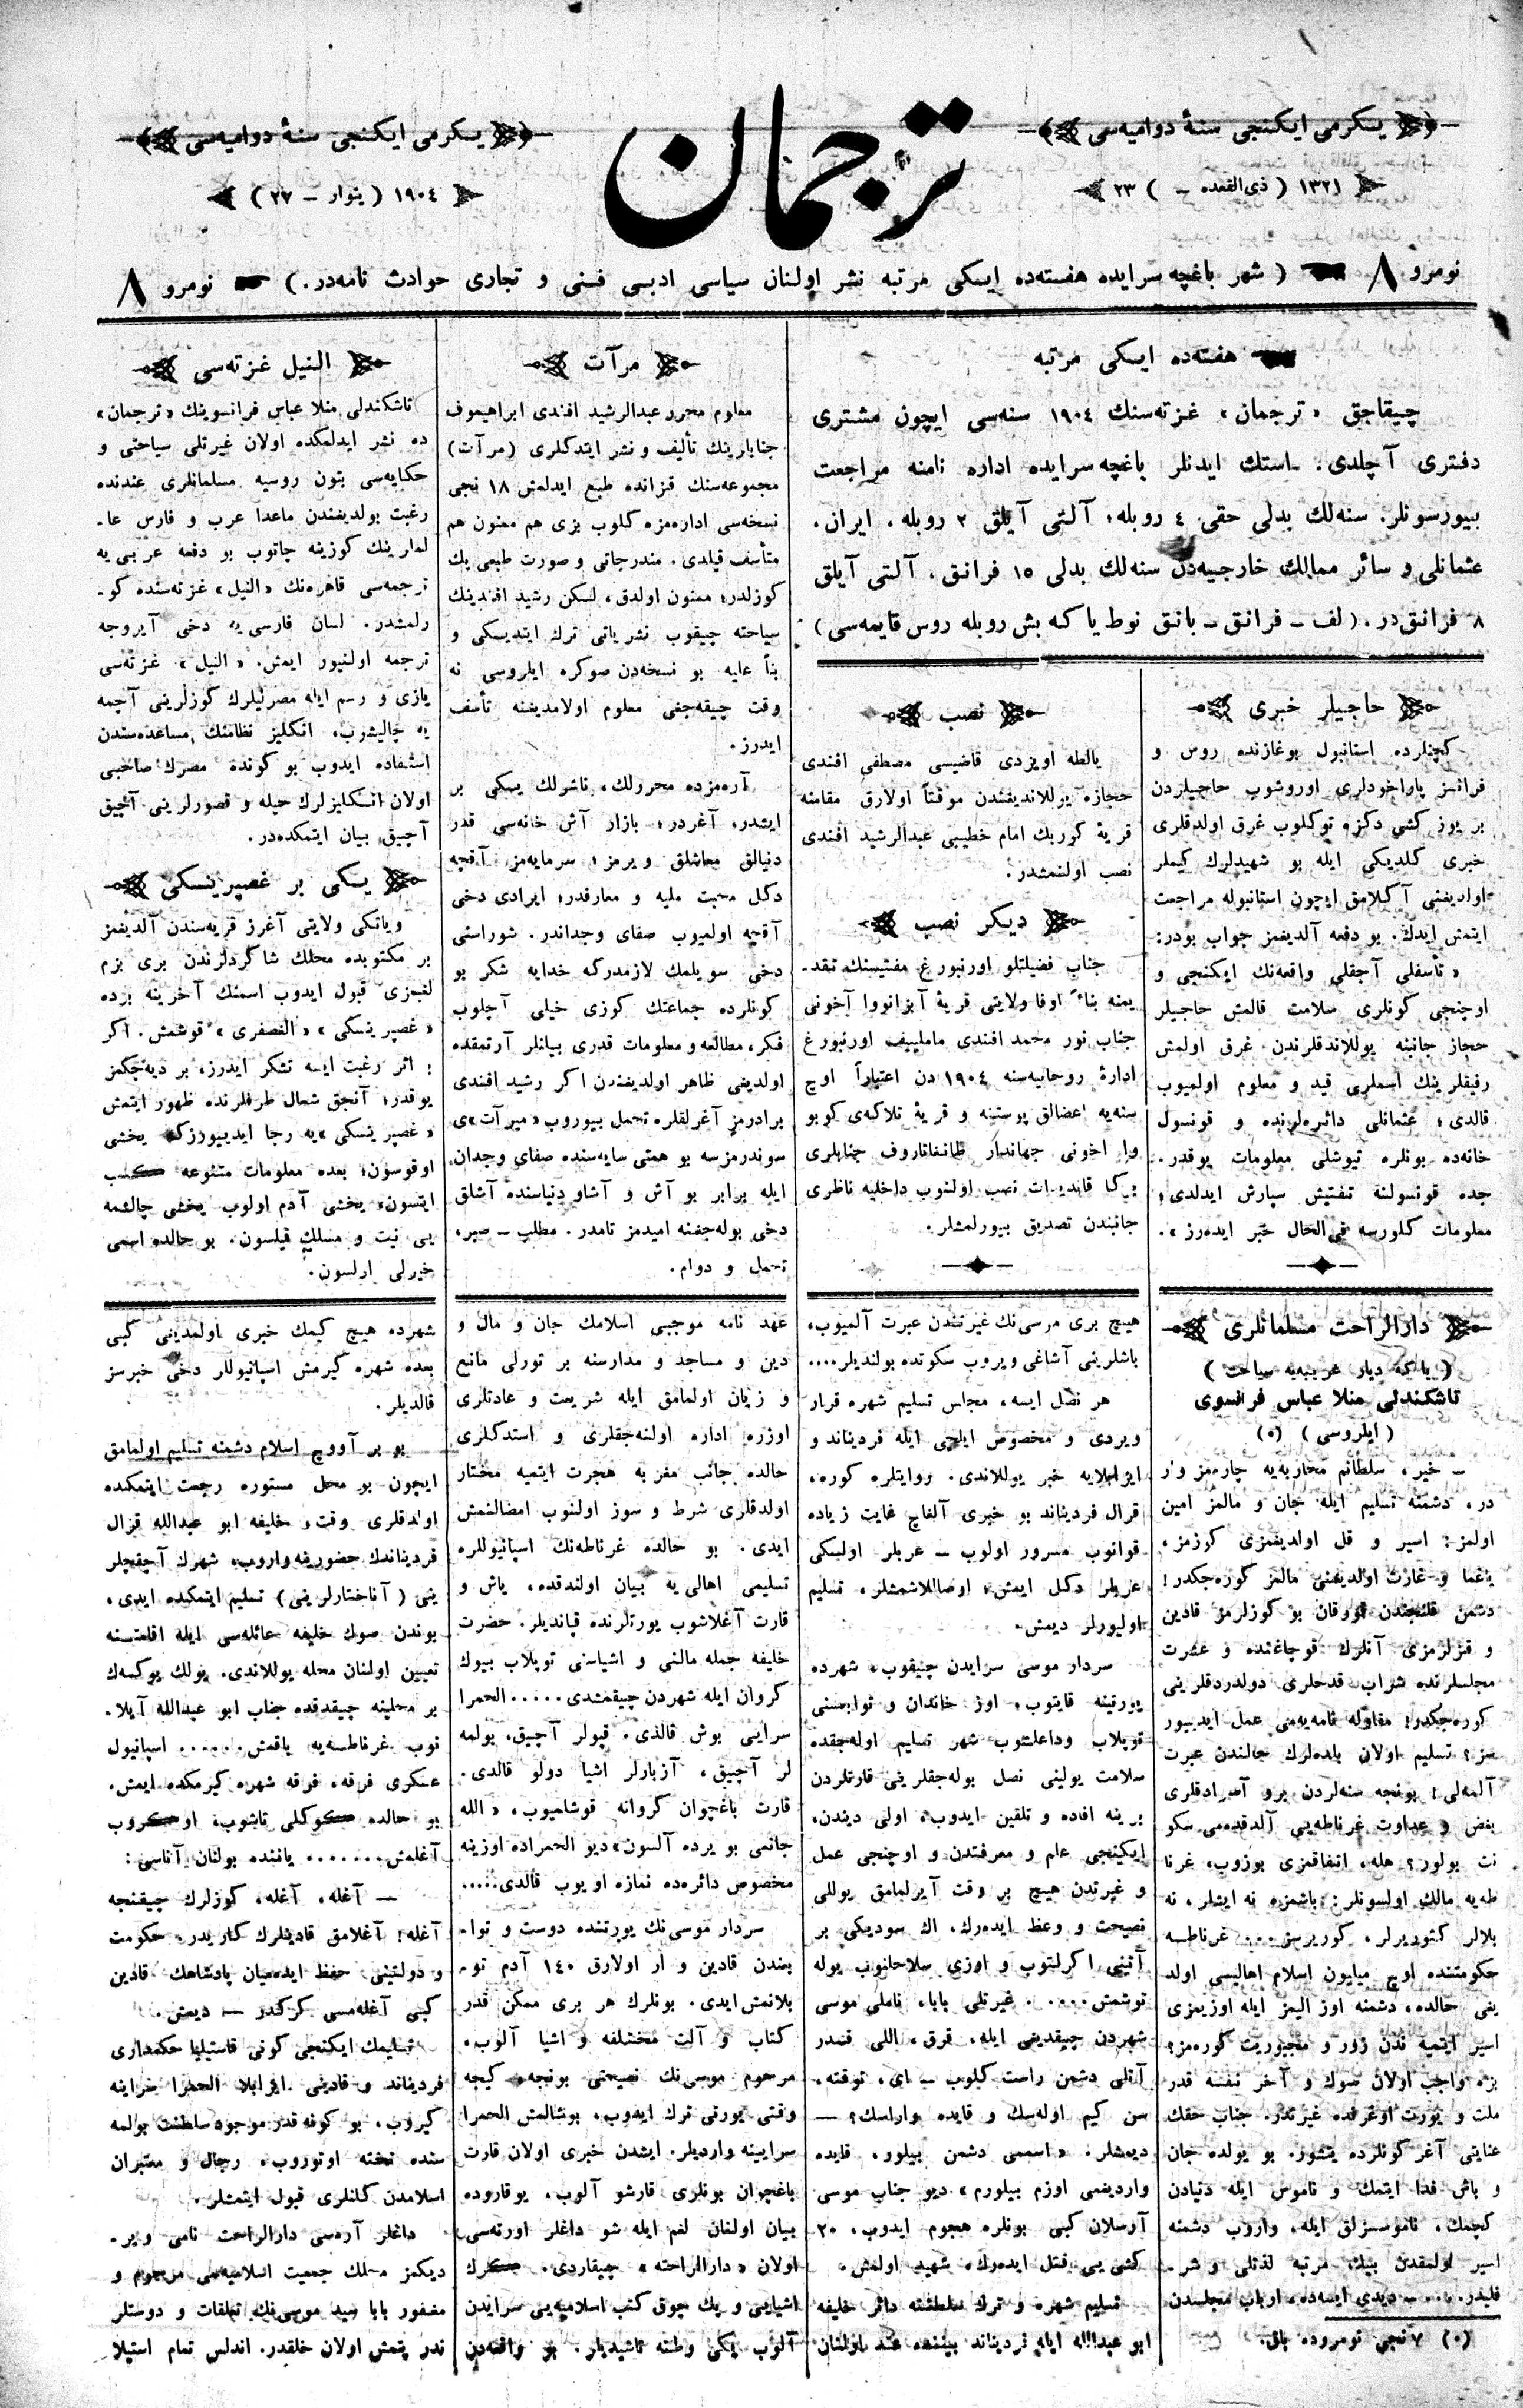 یکرمی ایکنجی سنهٔ دوامیه‌سی
۱۳۲۱ ( ذی القعده – ) ۲۳
ترجمان
یکرمی ایکنجی سنهٔ دوامیه‌سی
۱۹۰٤ ( ینوار – ۲۷ )
نومرو ۸ ( شهر باغچه سرایده هفته‌ده ایکی مرتبه نشر اولنان سیاسی ادبی فنی و تجاری حوادث نامه‌در. ) نومرو ۸
هفته‌ده ایکی مرتبه
چیقاجق «ترجمان» غزته‌سنك ۱۹۰٤ سنه‌سی ایچون مشتری
دفتری آچلدی. استك ایدنلر باغچه سرایده اداره نامنه مراجعت
بیورسونلر. سنه‌لك بدلی حقی ٤ روبله؛ آلتی آیلق ۲ روبله. ایران،
عثمانلی و سائر ممالك خارجیه‌دن سنه‌لك بدلی ۱۵ فرانق، آلتی آیلق
۸ فرانق‌در. ( لف – فرانق – بانق نوط یا که بش روبله روس قایمه‌سی )
حاجیلر خبری
کچنلرده استانبول بوغازنده روس و
فرانسز پاراخودلری اوروشوب حاجیلردن
بر یوز کشی دکزه توکلوب غرق اولدقلری
خبری کلدیکی ایله بو شهیدلرك کیملر
اولدیغنی آکلامق ایچون استانبوله مراجعت
ایتمش ایدك. بو دفعه آلدیغمز جواب بودر:
«تأسفلی آجقلی واقعه‌نك ایکنجی و
اوچنجی کونلری سلامت قالمش حاجیلر
حجاز جانبنه یوللاندقلرندن غرق اولمش
رفیقلرینك اسملری قید و معلوم اولمیوب
قالدی؛ عثمانلی دائره‌لرنده و قونسول
خانه‌ده بونلره تیوشلی معلومات یوقدر.
جده قونسولنه تفتیش سپارش ایدلدی؛
معلومات کلورسه فی الحال خبر ایده‌رز».
نصب
یالطه اویزدی قاضیسی مصطفی افندی
حجازه یوللاندیغندن موقتاً اولارق مقامنه
قریهٔ کوربك امام خطیبی عبدالرشید افندی
نصب اولنمشدر.
دیکر نصب
جناب فضیلتلو اورنبورغ مفتیسنك تقد-
یمنه بناءً اوفا ولایتی قریهٔ آیزانووا آخونی
جناب نور محمد افندی ماملییف اورنبورغ
ادارهٔ روحانیه‌سنه ۱۹۰٤ دن اعتباراً اوچ
سنه‌یه اعضالق پوستینه و قریهٔ تلاکه‌ی کوبو
وا اخونی جهاندار طانفاتاروف جنابلری
نصب اولنوب داخلیه ناظری
جانبندن تصدیق بیورلمشلر.
مرآت
معلوم محرر عبدالرشید افندی ابراهیموف
جنابلرینك تألیف و نشر ایتدکلری (مرآت)
مجموعه‌سنك قزانده طبع ایدلمش ۱۸ نجی
نسخه‌سی اداره‌مزه کلوب بزی هم ممنون هم
متأسف قیلدی. مندرجاتی و صورت طبعی پك
کوزلدر؛ ممنون اولدق، لیکن رشید افندینك
سیاحته چیقوب نشریاتی ترك ایتدیکی و
بناً علیه بو نسخه‌دن صوکره ایلروسی نه
وقت چیقه‌جغی معلوم اولامدیغنه تأسف
ایدرز.
آره‌مزده محررلك، ناشرلك یکی بر
ایشدر، آغردر؛ بازار آش خانه‌سی قدر
دنیالق معاشلق ویرمز؛ سرمایه‌مز آقچه
دکل محبت ملیه و معارفدر؛ ایرادی دخی
آقچه اولمیوب صفای وجداندر. شوراسنی
دخی سویلمك لازمدرکه خدایه شکر بو
کونلرده جماعتك کوزی خیلی آچلوب
فکر، مطالعه و معلومات قدری بیانلر آرتمقده
اولدیغی ظاهر اولدیغندن اکر رشید افندی
برادرمز آغرلقلره تحمل بیوروب «میرآت»ی
سوندرمزسه بو همتی سایه‌سنده صفای وجدان
ایله برابر بو آش و آشاو دنیاسنده آشلق
دخی بوله‌جغنه امیدمز تامدر. مطلب – صبر،
تحمل و دوام.
النیل غزته‌سی
تاشکندلی منلا عباس فرانسوینك «ترجمان»
ده نشر ایدلمکده اولان غیرتلی سیاحتی و
حکایه‌سی بتون روسیه مسلمانلری عندنده
رغبت بولدیغندن ماعدا عرب و فارس عا-
لملرینك کوزینه چاتوب بو دفعه عربی یه
ترجمه‌سی قاهره‌نك «النیل» غزته‌سنده کو-
رلمشدر. لسان فارسی یه دخی آیروجه
ترجمه اولنیور ایمش. «النیل» غزته‌سی
یازی و رسم ایله مصرلیلرك کوزلرینی آچمه
یه چالیشوب، انکلیز نظامنك مساعده‌سندن
استفاده ایدوب بو کونده مصرك صاحبی
اولان انکلیزلرك حیله و قصورلرینی آچیق
آچیق بیان ایتمکده‌در.
یکی بر غصپرینسکی
ویاتکی ولایتی آغرز قریه‌سندن آلدیغمز
بر مکتوبده محلك شاکردلرندن بری بزم
لقبمزی قبول ایدوب اسمنك آخرینه برده
«غصپرینسکی» «الغصفری» قوشمش. اکر
اثر رغبت ایسه تشکر ایدرز، بر دیه‌جکمز
یوقدر؛ آنجق شمال طرفلرنده ظهور ایتمش
«غصپرینسکی»یه رجا ایدییورزکه یخشی
اوقوسون؛ بعده معلومات متنوعه کسب
ایتسون، یخشی آدم اولوب یخشی چالشمه
یی نیت و مسلك قیلسون. بو حالده اسمی
خیرلی اولسون.
دارالراحت مسلمانلری
( یا که دیار غریبیه سیاحت )
تاشکندلی منلا عباس فرانسوی
( ایلروسی ) (٥)
– خیر، سلطانم محاربه‌یه چاره‌مز وار
در، دشمنه تسلیم ایله جان و مالمز امین
اولمز: اسیر و قل اولدیغمزی کورزمز،
یاغما و غارت اولدیغنی مالمز کوره‌جکدر!
دشمن قلنجندن بو کوزلرمز قادین
و قزلرمزی آنلرك قوچاغنده و عشرت
مجلسلرنده شراب قدحلری دولدردقلرینی
کوره‌جکدر! مقاوله نامه‌یه‌می عمل ایدییور
سز؟ تسلیم اولان بلده‌لرك حالندن عبرت
آلمه‌لی! بونجه سنه‌لردن برو آصرادقلری
بغض و عداوت غرناطه‌یی آلدقده‌می سکو
نت بولور؟ هله، اتفاقمزی بوزوب، غرنا
طه‌یه مالك اولسونلر: باشمزه نه ایشلر، نه
بلالر کتوریرلر، کوریرسز... غرناطه
حکومتنده اوچ میلیون اسلام اهالیسی اولد
یغی حالده، دشمنه اوز الیمز ایله اوزیمزی
اسیر ایتمیه ندن زور و مجبوریت کوره‌مز؟
بزه واجب اولان صوك و آخر نفسه قدر
ملت و یورت اوغرنده غیرتدر. جناب حقك
عنایتی آغر کونلرده یتشور. بو یولده جان
و باش فدا ایتمك و ناموس ایله دنیادن
کچمك، ناموسسزلق ایله، واروب دشمنه
اسیر اولمقدن بیك مرتبه لذتلی و شر-
فلیدر.... – دیدی ایسه‌ده، ارباب مجلسدن
(٥) ۷نجی نومروده باق.
هیچ بری مرسی‌نك غیرتندن عبرت آلمیوب،
باشلرینی آشاغی ویروب سکوتده بولندیلر....
هر نصل ایسه، مجلس تسلیم شهره قرار
ویردی و مخصوص ایلچی ایله فردیناند و
ایزابلایه خبر یوللاندی. روایتلره کوره،
قرال فردیناند بو خبری آلغاچ غایت زیاده
قوانوب مسرور اولوب – عربلر اولیکی
عربلر دکل ایمش؛ اوصاللاشمشلر، تسلیم
اولیورلر دیمش.
سردار موسی سرایدن چیقوب، شهرده
یورتینه قایتوب، اوز خاندان و توابعنی
توپلاب وداعلشوب شهر تسلیم اوله‌جقده
سلامت یولینی نصل بوله‌جقلرینی قارتلردن
برینه افاده و تلقین ایدوب، اولی دیندن،
ایکینجی علم و معرفتدن و اوچنجی عمل
و غیرتدن هیچ بر وقت آیرلمامق یوللی
نصیحت و وعظ ایده‌رك، اك سودیکی بر
آتینی اکرلتوب و اوزی سلاحلانوب یوله
توشمش..... غیرتلی بابا، ناملی موسی
شهردن چیقدیغی ایله، قرق، اللی قدر
آتلی دشمن راست کیلوب – ای، توقته،
سن کیم اوله‌سك و قایده واراسك؟ –
دیمشلر. «اسممی دشمن بیلور، قایده
واردیغمی اوزم بیلورم» دیو جناب موسی
آرسلان کبی بونلره هجوم ایدوب، ۲۰
کشی یی قتل ایده‌رك، شهید اولمش.
تسلیم شهره و ترك سلطنته دائر خلیفه
ابو عبدالله ایله فردیناند بیننده عقد اولنان
عهد نامه موجبی اسلامك جان و مال و
دین و مساجد و مدارسنه بر تورلی مانع
و زیان اولمامق ایله شریعت و عادتلری
اوزره اداره اولنه‌جقلری و استدکلری
حالده جانب مغربه هجرت ایتمیه مختار
اولدقلری شرط و سوز اولنوب امضالنمش
ایدی. بو حالده غرناطه‌نك اسپانیوللره
تسلیمی اهالی یه بیان اولندقده، یاش و
قارت آغلاشوب یورتلرنده قپاندیلر. حضرت
خلیفه جمله مالنی و اشیاسنی توپلاب بیوك
کروان ایله شهردن چیقمشدی..... الحمرا
سرایی بوش قالدی. قپولر آچیق، بولمه
لر آچیق، آزبارلر اشیا دولو قالدی.
قارت باغچوان کروانه قوشلمیوب، «الله
جانمی بو یرده آلسون» دیو الحمراده اوزینه
مخصوص دائره‌ده نمازه اویوب قالدی.....
سردار موسی‌نك یورتنده دوست و توا-
بعندن قادین و ار اولارق ۱٤۰ آدم تو-
پلانمش ایدی. بونلرك هر بری ممکن قدر
کتاب و آلت مختلفه و اشیا آلوب،
مرحوم موسی‌نك نصیحتی بونجه، کیجه
وقتی یورتی ترك ایدوب، بوشالمش الحمرا
سراینه واردیلر. ایشدن خبری اولان قارت
باغچوان بونلری قارشو آلوب، یوقاروده
بیان اولنان لغم ایله شو داغلر اورته‌سی
اولان «دارالراحته» چیقاردی. کرك
اشیایی و پك چوق کتب اسلامیه‌یی سرایدن
آلوب یکی وطنه تاشیدیلر. بو واقعه‌دن
شهرده هیچ کیمك خبری اولمدیغی کبی
بعده شهره کیرمش اسپانیوللر دخی خبرسز
قالدیلر.
بو بر آووچ اسلام دشمنه تسلیم اولمامق
ایچون بو محل مستوره رجعت ایتمکده
اولدقلری وقت، خلیفه ابو عبدالله قرال
فردیناندك حضورینه واروب، شهرك آچقچلر
ینی ( آناختارلرینی ) تسلیم ایتمکده ایدی،
بوندن صوك خلیفه عائله‌سی ایله اقامتنه
تعیین اولنان محله یوللاندی. یولك یوکسك
بر محلینه چیقدقده جناب ابو عبدالله آیلا-
نوب غرناطه‌یه باقمش...... اسپانیول
عسکری فرقه، فرقه شهره کیرمکده ایمش.
بو حالده کوکلی تاشوب، اوکروب
آغلمش....... یاننده بولنان آناسی:
– آغله، آغله، کوزلرك چیقنجه
آغله! آغلامق قادینلرك کاریدر. حکومت
و دولتینی حفظ ایده‌میان پادشاهك قادین
کبی آغله‌مسی کرکدر – دیمش.
تسلیمك ایکنجی کونی قاستیلیا حکمداری
فردیناند و قادینی ایزابلا الحمرا سراینه
کیروب، بو کونه قدر موجود سلطنت بولمه
سنده تخته اوتوروب، رجال و معتبران
اسلامدن کلنلری قبول ایتمشلر.
داغلر آره‌سی دارالراحت نامی ویر-
دیکمز محلك جمعیت اسلامیه‌سی مرحوم و
مغفور بابا سید موسی‌نك تعلقات و دوستلر
ندن یتمش اولان خلقدر. اندلس تمام استیلا